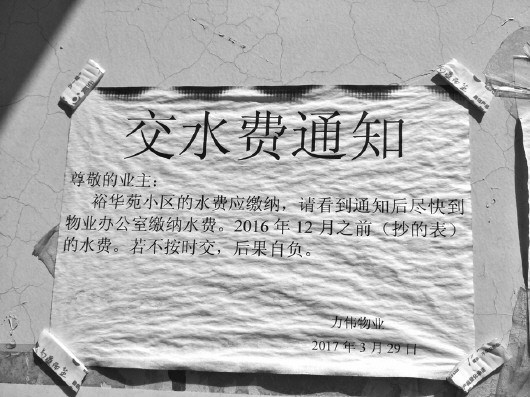 交水费通知
尊敬的业主：
裕华苑小区的水费应缴纳，请看到通知后尽快到
物业办公室缴纳水费。2016年12月之前（抄的表）
的水费。若不按时交，后果自负。
力伟物业
2017年3月29日